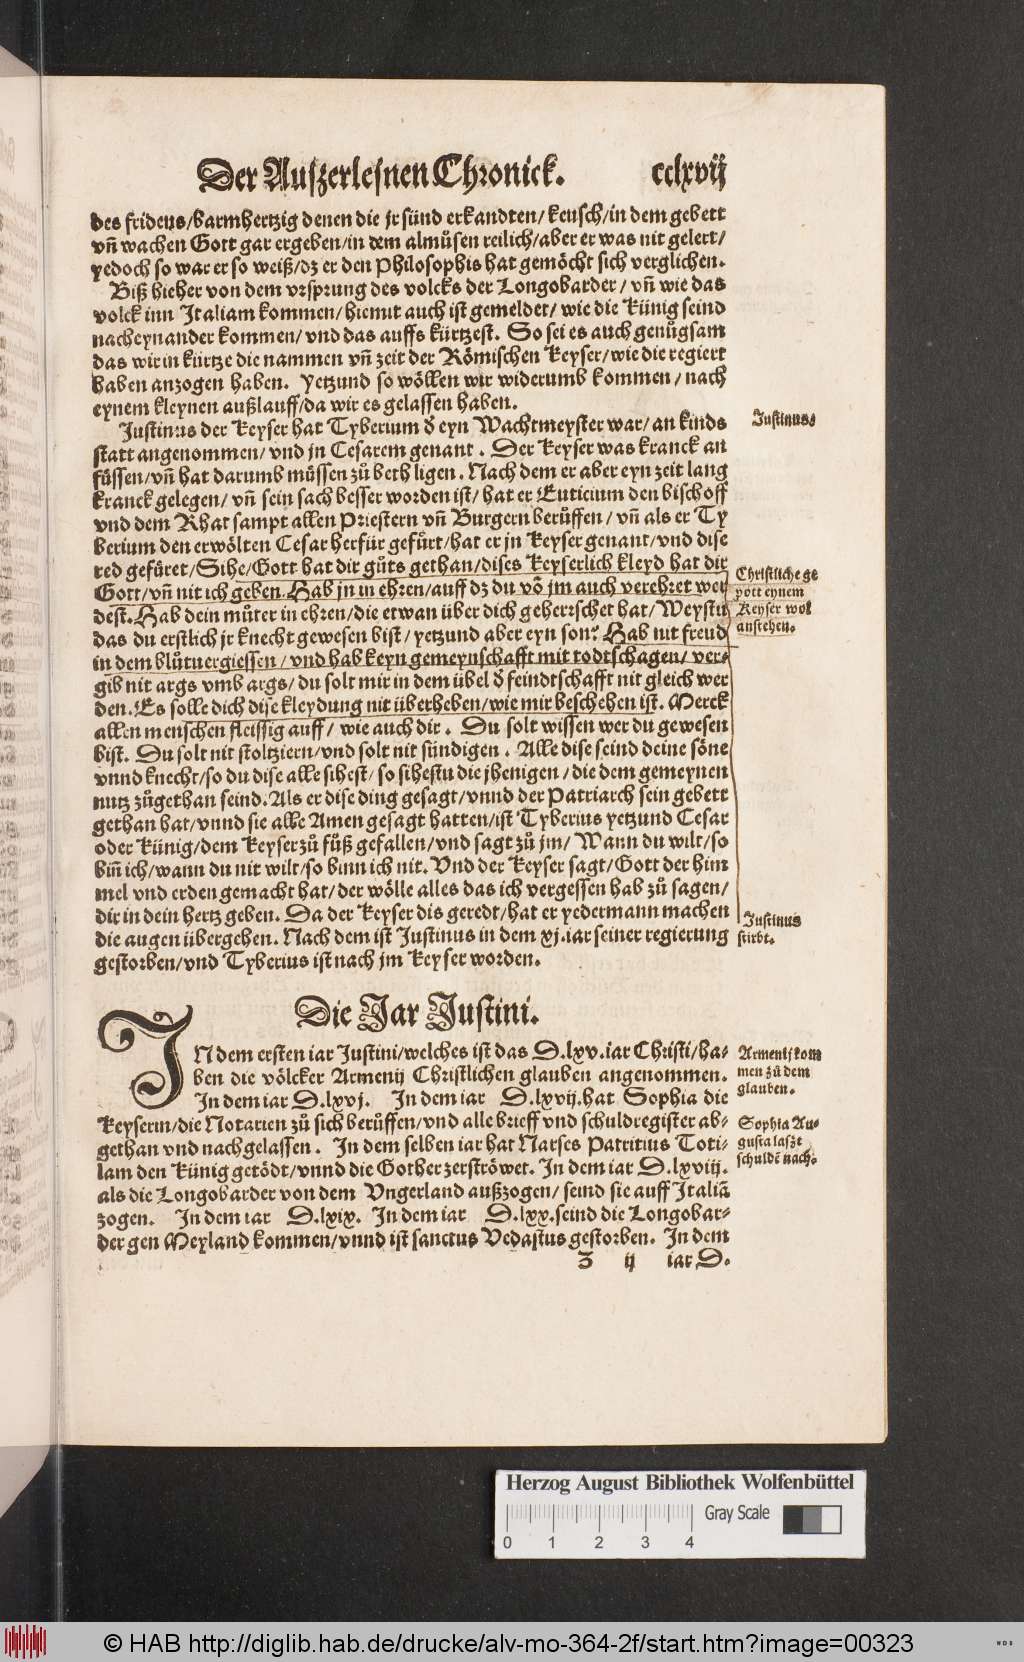 Der Auszerlesnen Chronick. cclxvij
des fridens/barmhertzig denen die jr sünd erkandten/keusch/in dem gebett
vñ wachen Gott gar ergeben/in dem almůsen reilich/aber er was nit gelert/
yedoch so war er so weiß/dz er den Philosophis hat gemöcht sich verglichen.
Biß hieher von dem vrsprung des volcks der Longobarder/vñ wie das
volck inn Italiam kommen/hiemit auch ist gemeldet/wie die Künig seind
nacheynander kommen/vnd das auffs kürtzest. So sei es auch genůgsam
das wir in kürtze die nammen vñ zeit der Römischen Keyser/wie die regiert
haben anzogen haben. Yetzund so wöllen wir widerumb kommen/nach
eynem kleynen außlauff/da wir es gelassen haben.
Justinus der Keyser hat Tyberium d̕ eyn Wachtmeyster war/an kinds
statt angenommen/vnd jn Cesarem genant. Der Keyser was kranck an
füssen/vñ hat darumb müssen zů beth ligen. Nach dem er aber eyn zeit lang
kranck gelegen/vñ sein sach besser worden ist/hat er Euticium den bischoff
vnd dem Rhat sampt allen Priestern vñ Burgern berůffen/vñ als er Ty
berium den erwölten Cesar herfür gefůrt/hat er jn Keyser genant/vnd dise
red gefüret/Sihe/Gott hat dir gůts gethan/dises Keyserlich kleyd hat dir
Gott/vñ nit ich geben. Hab jn in ehren/auff dz du võ jm auch verehret wer
dest. Hab dein můter in ehren/die etwan über dich geherrschet hat/Weystu
das du erstlich jr knecht gewesen bist/yetzund aber eyn son? Hab nit freud
in dem blůtuergiessen/vnd hab keyn gemeynschafft mit todtschagen/ver-
gib nit args vmb args/du solt mir in dem übel d̕ feindtschafft nit gleich wer
den. Es solle dich dise kleydung nit überheben/wie mir beschehen ist. Merck
allen menschen fleissig auff/wie auch dir. Du solt wissen wer du gewesen
bist. Du solt nit stoltziern/vnd solt nit sündigen. Alle dise seind deine söne
vnnd knecht/so du dise alle sihest/so sihestu die jhenigen/die dem gemeynen
nutz zůgethan seind. Als er dise ding gesagt/vnnd der Patriarch sein gebett
gethan hat/vnnd sie alle Amen gesagt hatten/ist Tyberius yetzund Cesar
oder Künig/dem Keyser zů fůß gefallen/vnd sagt zů jm/Wann du wilt/so
bin̄ ich/wann du nit wilt/so binn ich nit. Vnd der Keyser sagt/Gott der him
mel vnd erden gemacht hat/der wölle alles das ich vergessen hab zů sagen/
dir in dein hertz geben. Da der Keyser dis geredt/hat er yedermann machen
die augen übergehen. Nach dem ist Justinus in dem xj. iar seiner regierung
gestorben/vnd Tyberius ist nach jm Keyser worden.
Justinus.
Christliche ge
pott eynem
Keyser wol
anstehen.
Justinus
stirbt.
Die Jar Justini.
IN dem ersten iar Justini/welches ist das D.lxv. iar Christi/ha-
ben die völcker Armenij Christlichen glauben angenommen.
In dem iar D.lxvj. In dem iar D.lxvij. hat Sophia die
Keyserin/die Notarien zů sich berůffen/vnd alle brieff vnd schuldregister ab-
gethan vnd nachgelassen. In dem selben iar hat Narses Patritius Toti-
lam den Künig getödt/vnnd die Gother zerströwet. In dem iar D.lxviij.
als die Longobarder von dem Vngerland außzogen/seind sie auff Italiã
zogen. In dem iar D.lxix. In dem iar D.lxx. seind die Longobar-
der gen Meyland kommen/vnnd ist sanctus Vedastus gestorben. In dem
Z ij iar D.
Armenij kom
men zů dem
glauben.
Sophia Au-
gusta laszt
schuldẽ nach.
Herzog August Bibliothek Wolfenbüttel
Gray Scale
0 1 2 3 4
© HAB http://diglib.hab.de/drucke/alv-mo-364-2f/start.htm?image=00323